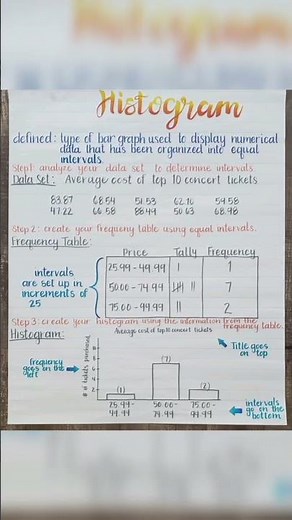 Histogram
defined: type of bar graph used to display numerical
data that has been organized into equal
intervals.
Step 1: analyze your data set to determine intervals.
Data Set: Average cost of top 10 concert tickets
83.87 68.54 51.53 62.16 54.58
47.22 66.58 88.49 50.63 68.98
Step 2: create your frequency table using equal intervals.
Frequency Table:
Price Tally Frequency
25.99 - 49.99 | 1
50.00 - 74.99 |||| || 7
75.00 - 99.99 || 2
intervals
are set up in
increments of
25
Step 3: create your histogram using the information from the
frequency table.
Histogram:
Average cost of top 10 concert tickets
Title goes
on top
Frequency
goes on the
left
# of tickets purchased
8
6
4
2
(1)
(7)
(2)
25.99-
49.99
50.00-
74.99
75.00-
99.99
intervals
go on the
bottom